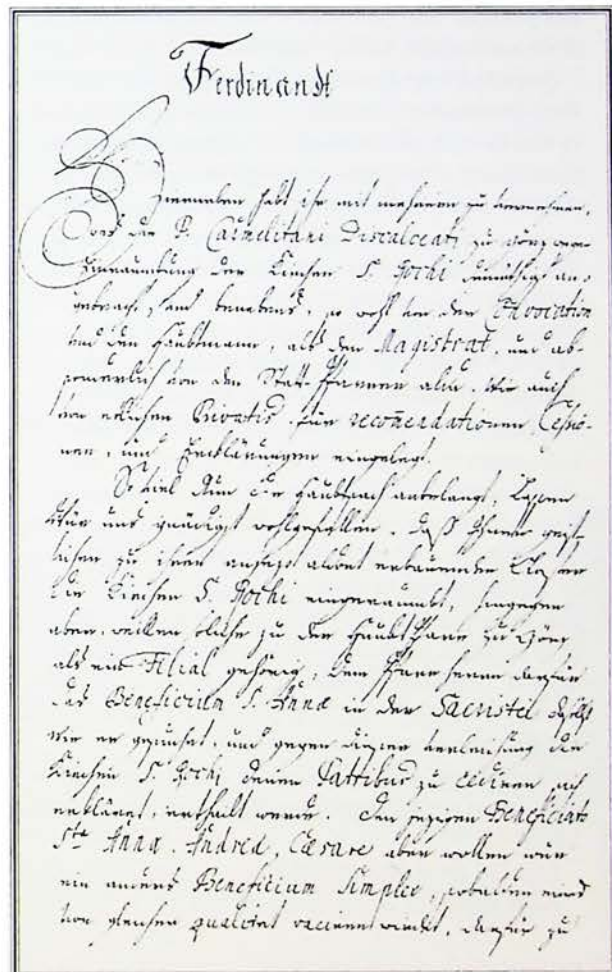 Ferdinandt
habt ihr mit mehreren zu vernehmen,
P. Carmelitani Discalceati zu Görz wegen
Einraumbung der Kirchen S. Rochi
gebracht, und benebens, so wohl von der Convocation
und den Haubtmann, als den Magistrat, und ab-
sonderlich von den Statt-Pfarrern alda, wie auch
von etlichen Privatis, für recom̄endationen Cessio-
nen, und Erklärungen eingelegt.
So viel nun die Haubtsach anbelangt, lassen
Wür uns gnädigst wohlgefallen, daß Ihnen geist-
lichen zu ihren alldort erbauenden Closter
die Kirchen S. Rochi eingeraumbt, hingegen
aber, weillen solche zu der HaubtPfarr zu Görz
als ein Filial gehörig, dem Pfarrherrn dafür
das Beneficium S. Annæ in der Sacristei daselbst
wie er gesuchet, und gegen dieser verleihung die
Kirchen S. Rochi denen Pattibus zu cediren sich
erkläret, ertheilt werde. Den jezigen Beneficiato
Sta Annæ, Andreæ, Cæsare aber wollen wür
ein anders Beneficium Simplex, sobalden eines
von gleicher qualitet vaciren wirdt, dafür zu